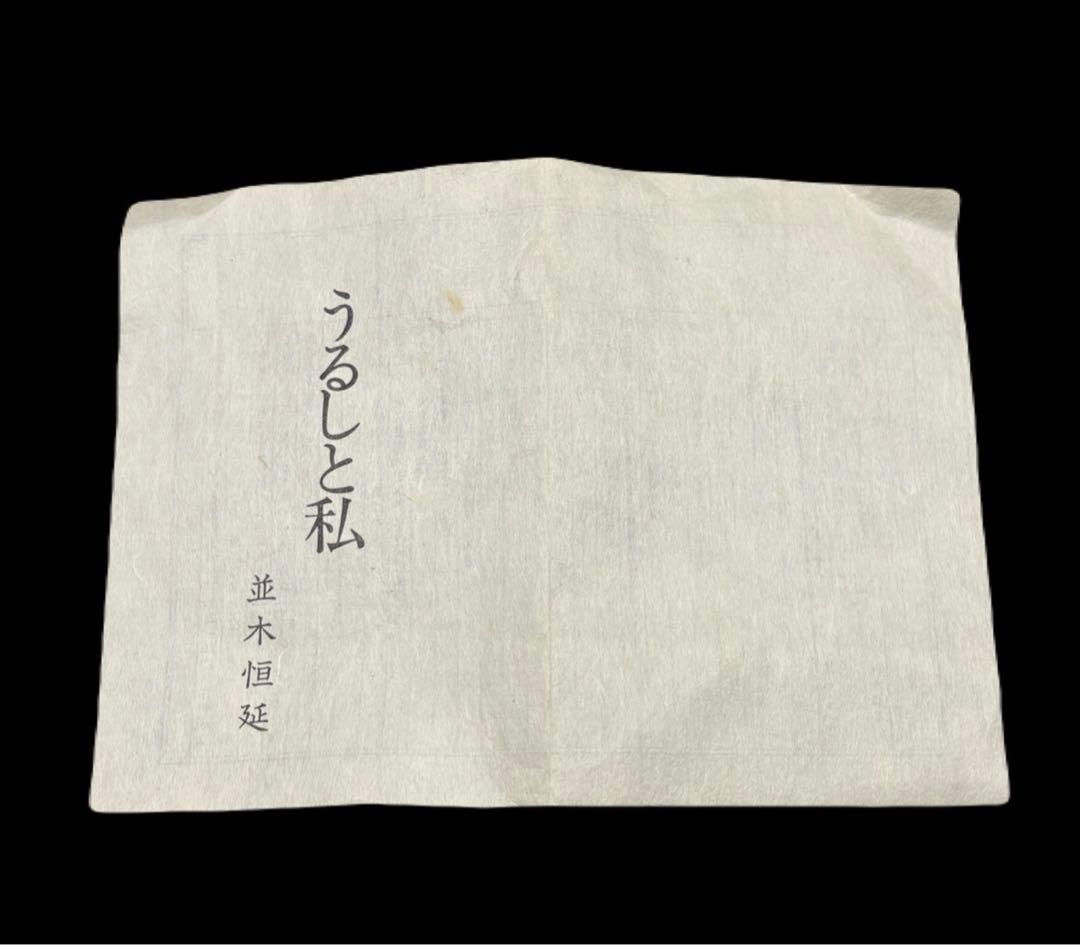 うるしと私
並木恒延